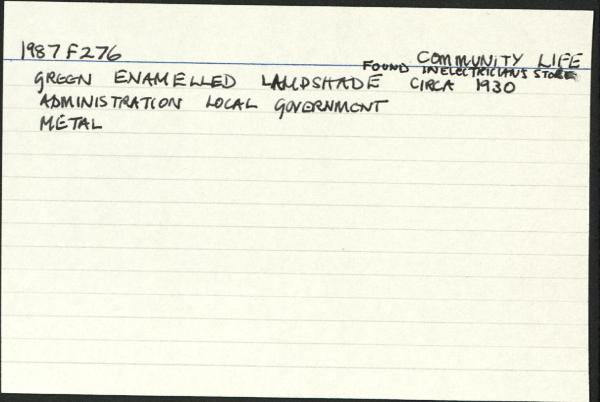 1987 F276 COMMUNITY LIFE
FOUND IN ELECTRICIANS STORE
GREEN ENAMELLED LAMPSHADE CIRCA 1930
ADMINISTRATION LOCAL GOVERNMENT
METAL